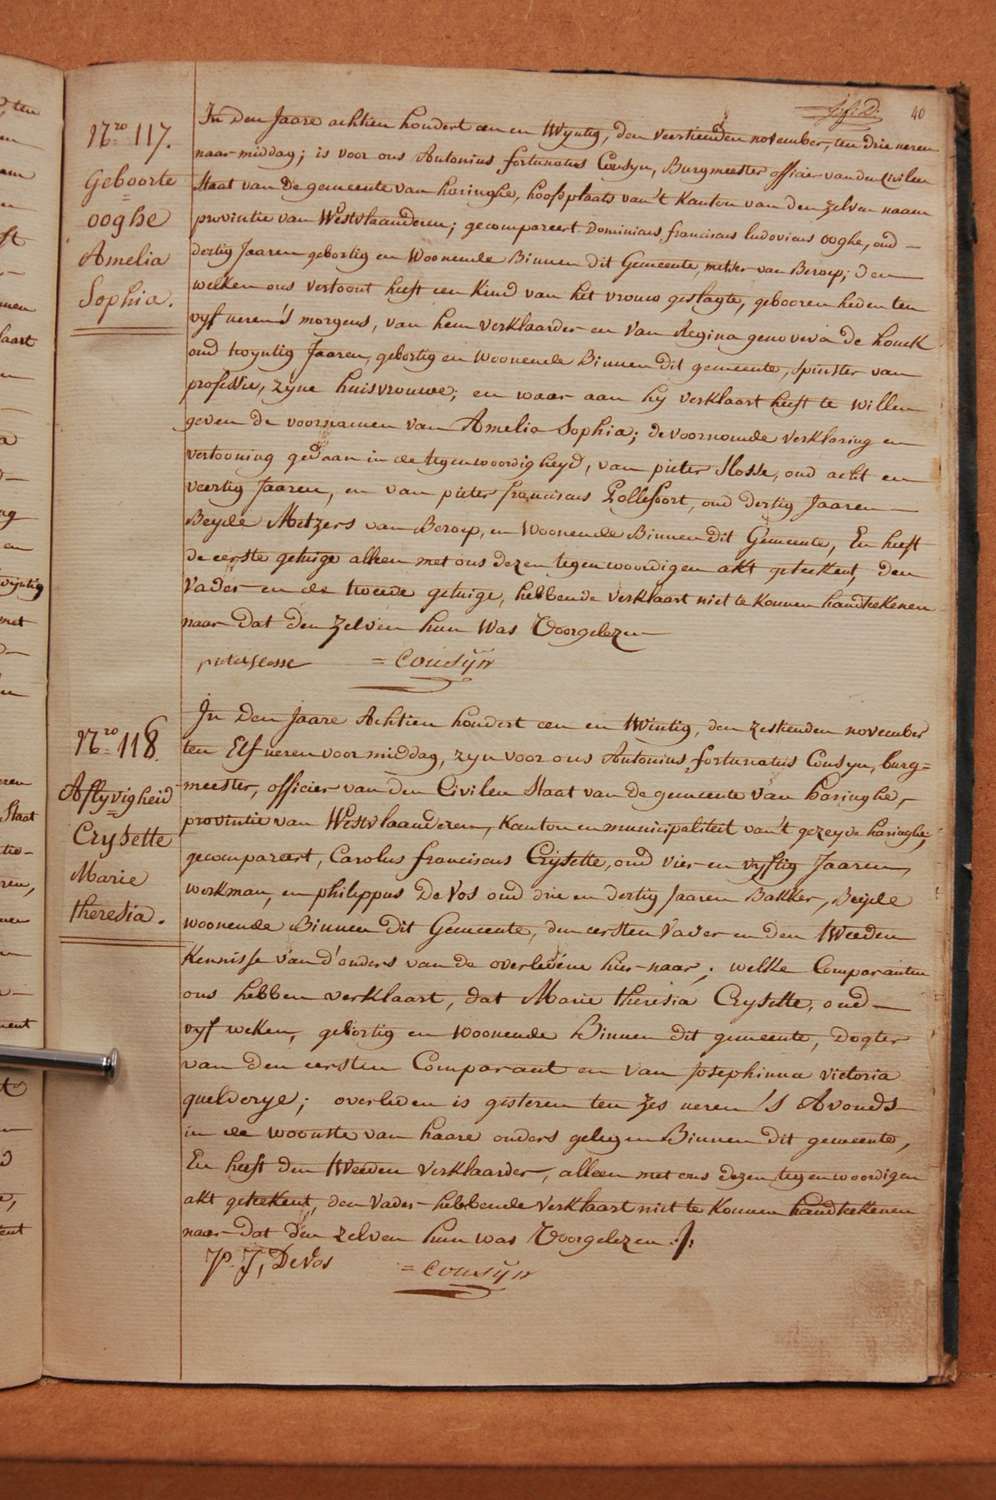 40
Nro 117.
Geboorte
ooghe
Amelia
Sophia.
In den Jaare achtien hondert een en twyntig, den veertienden november, ten drie ueren
naar middag; is voor ons Antonius fortunatus Cousyn, Burgmeester officier van den Civilen
Staat van de gemeente van haringhe, hoofdplaats van 't Kanton van den zelven naam
provintie van Westvlaanderen; gecompareert Dominicus franciscus ludovicus ooghe, oud
dertig Jaaren gebortig en Woonende Binnen dit Gemeente, metser van Beroep; den
welken ons vertoont heeft een Kind van het vrouw geslagte, gebooren heden ten
vyf ueren 's morgens, van hem verklaarder en van Regina genoveva de houck
oud twyntig Jaaren, gebortig en woonende Binnen dit gemeente, spinster van
professie, zyne huisvrouwe; en waar aan hy verklaart heeft te willen
geven de voornamen van Amelia Sophia; de voornoemde verklaring en
vertooning gedaan in de tegenwoordigheyd, van pieter Slosse, oud acht en
veertig Jaaren, en van pieter franciscus Gollefoort, oud dertig Jaaren
Beyde Metzers van Beroep, en Woonende Binnen dit Gemeente, En heeft
de eerste getuige alleen met ons dezen tegenwoordigen akt geteekent, den
Vader en de tweede getuige, hebbende verklaart niet te konnen handteekenen
naar dat den zelven hun Was Voorgelezen
pieter slosse = Cousÿn
Nro 118.
Aflyvigheid
Crysette
Marie
theresia.
In Den Jaare Achtien hondert een en twintig, den zestienden november
ten Elf ueren voor middag, zyn voor ons Antonius fortunatus Cousyn, burg=
meester, officier van den Civilen Staat van de gemeente van haringhe,
provintie van Westvlaanderen, Kanton en municipaliteit van't gezeyde haringhe,
gecompareert, Carolus franciscus Crysette, oud vier en vyftig Jaaren,
werkman, en philippus De vos oud drie en dertig Jaaren Bakker, Beijde
woonende Binnen Dit Gemeente, den eersten Vader en den tweeden
Kennisse van d'ouders van de overledene hier-naar; welke Comparanten
ons hebben verklaart, dat Marie theresia Crysette, oud
vyf weken, gebortig en woonende Binnen dit gemeente, dogter
van den eersten Comparant en van Josephinna victoria
quelderye; overleden is gisteren ten zes ueren 's Avonds
in de woonste van haare ouders gelegen Binnen dit gemeente,
En heeft den tweeden verklaarder, alleen met ons dezen tegenwoordigen
akt geteekent, den vader hebbende verklaart niet te konnen handteekenen
naar dat den zelven hun was Voorgelezen
P. J, De vos = Cousÿn